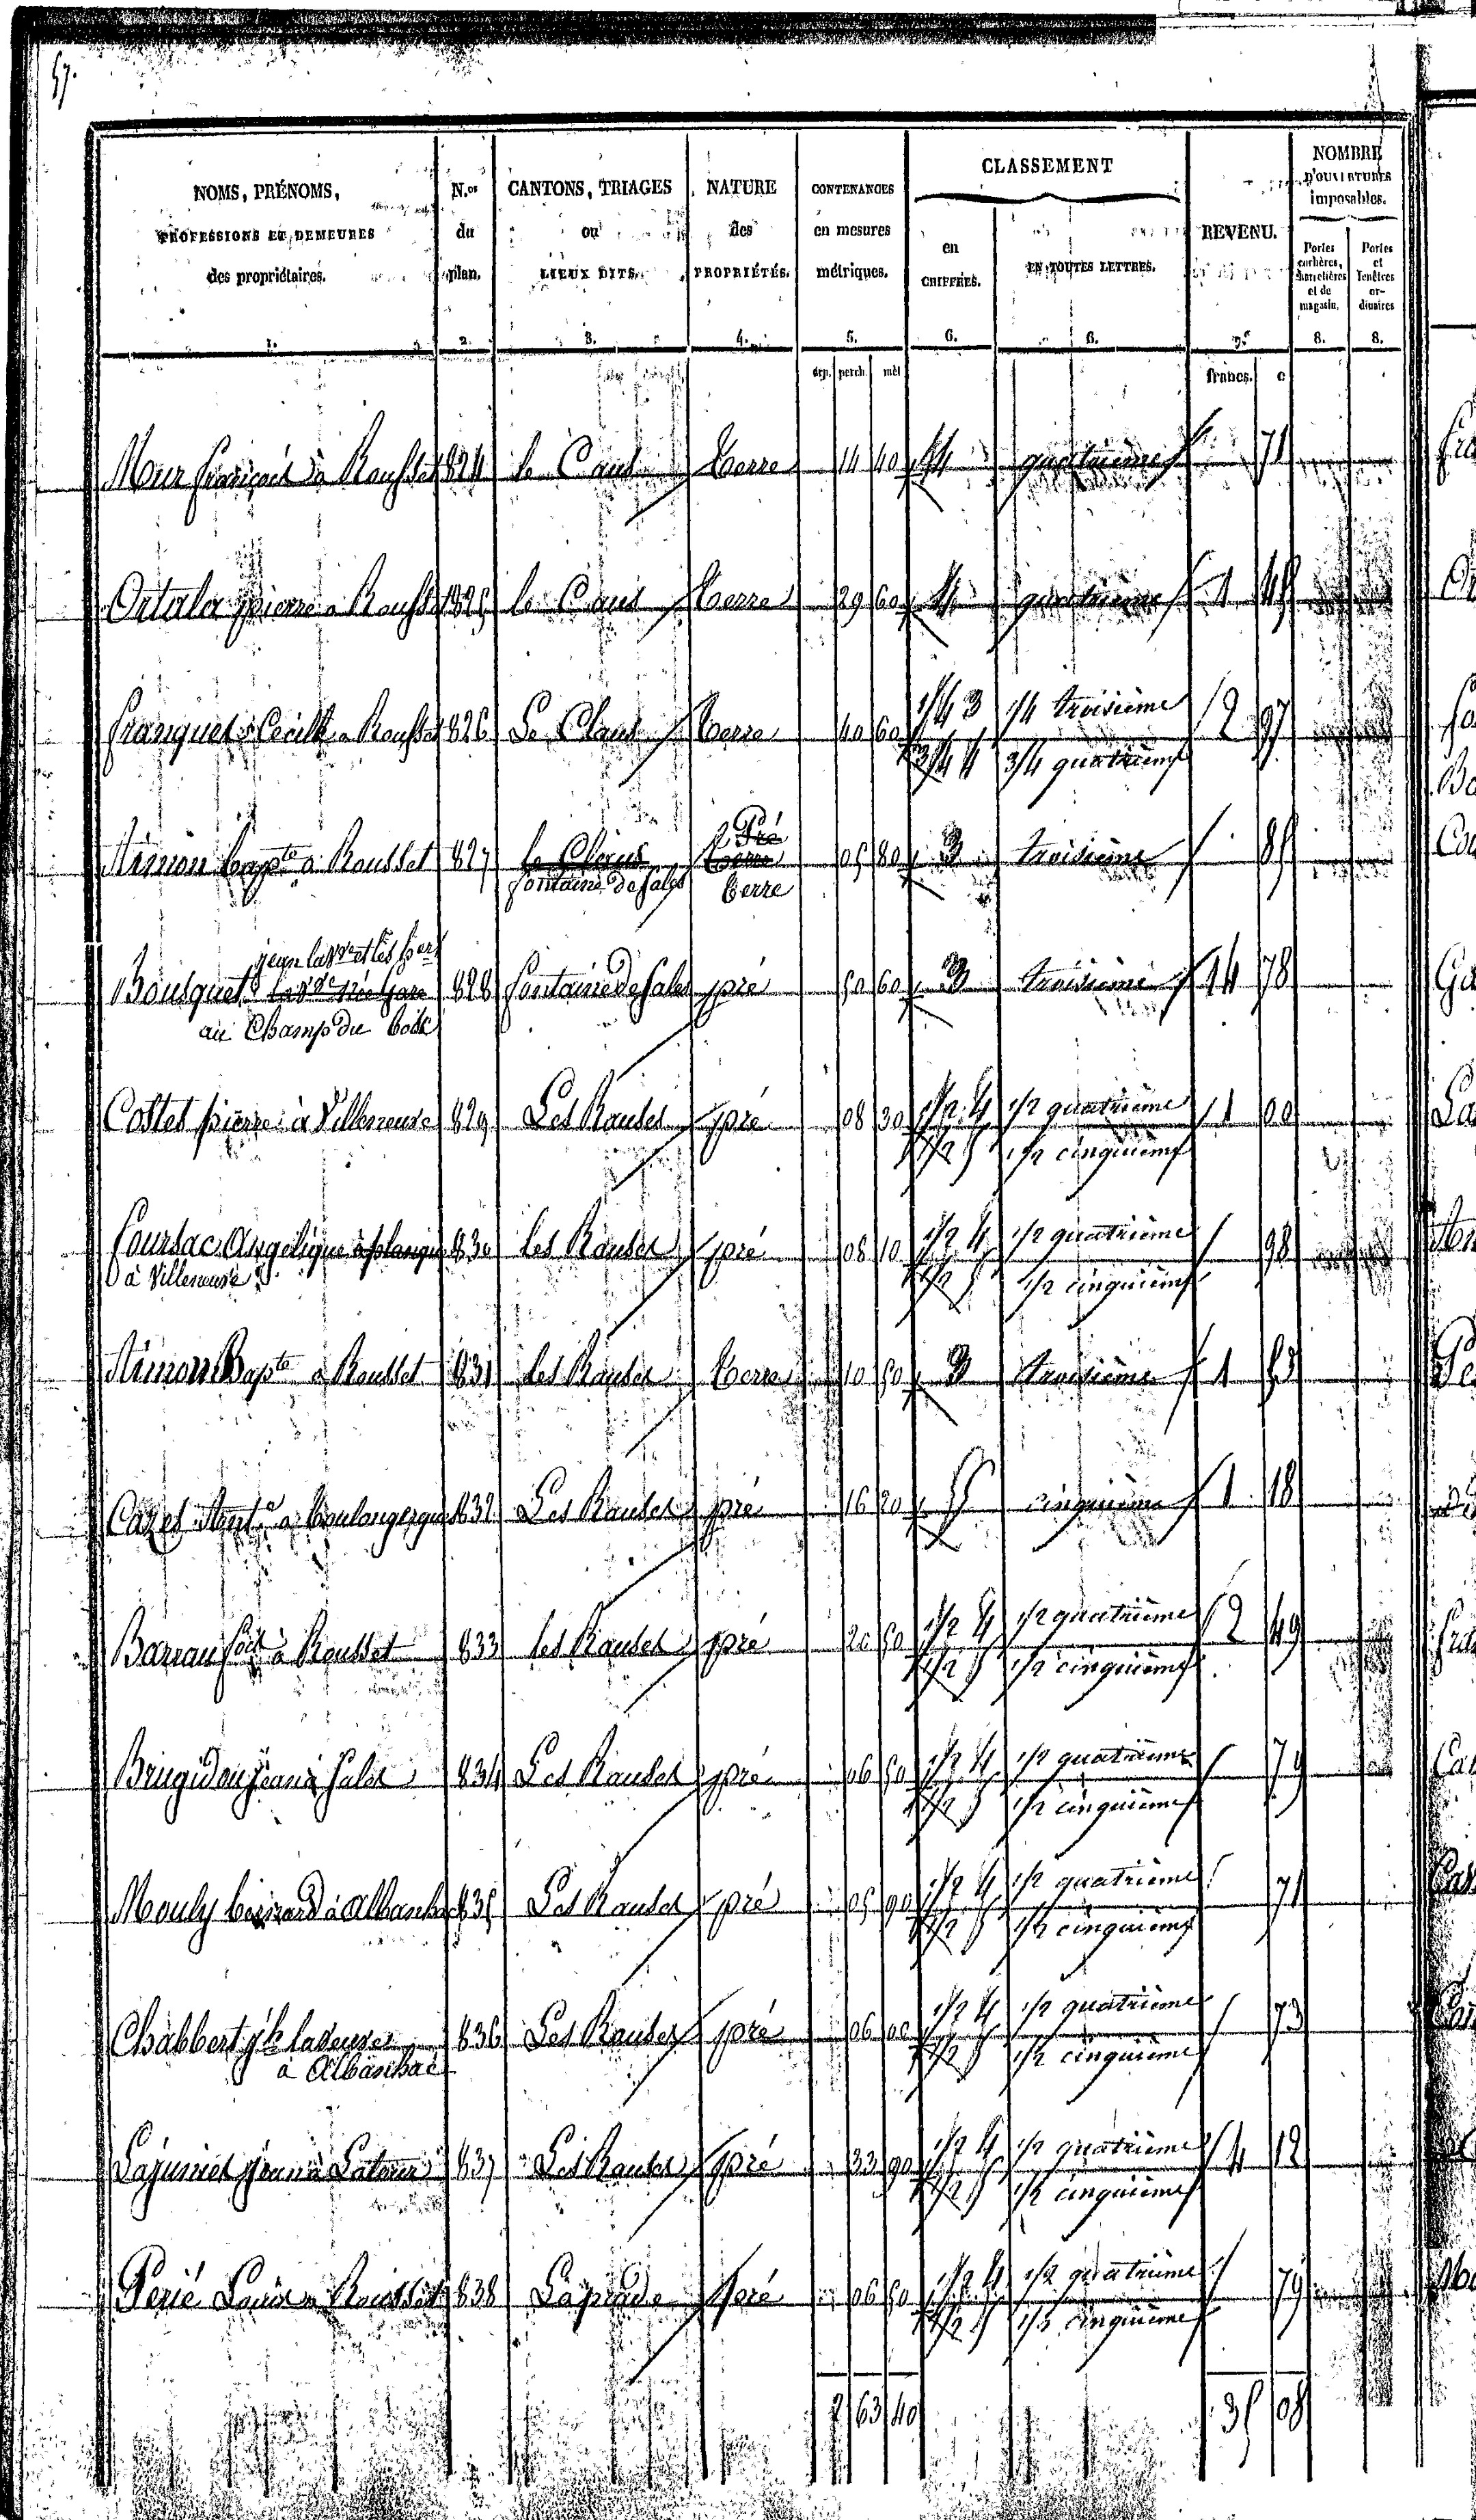 57.
NOMS, PRÉNOMS, PROFESSIONS ET DEMEURES des propriétaires. 1.
N.os du plan. 2.
CANTONS, TRIAGES ou LIEUX DITS. 3.
NATURE des PROPRIÉTÉS. 4.
CONTENANCES en mesures métriques. 5.
CLASSEMENT
en CHIFFRES. 6.
EN TOUTES LETTRES. 6.
REVENU. 7.
NOMBRE D'OUVERTURES imposables.
Portes cochères, charretières et de magasin. 8.
Portes et Fenêtres ordinaires 8.
arp. perch. mèt francs. c
Mour françois à Rousset 824 le Caus terre 14 40 4 quatrième 71
Ortala pierre a Rousset 825 le Caus terre 29 60 4 quatrième 1 45
franques Cecille a Rousset 826 Le Claus terre 40 60 1/4 3 1/4 troisième 2 97
3/4 4 3/4 quatrième
Pré
Aimon bapte a Rousset 827 le Claus terre 05 80 3 troisième 85
fontaine de Sales terre
jean la ve et les hers
Bousquet la vve née Gare 828 fontaine de Sales pré 50 60 3 troisième 14 78
au Champ du bosc
Costes pierre à Villeneuve 829 Les Rauses pré 08 30 1/2 4 1/2 quatrième 1 00
1/2 5 1/2 cinquième
Foursac Angelique 830 les Rauses pré 08 10 1/2 4 1/2 quatrième 98
à Villeneuve 1/2 5 1/2 cinquième
Aimon Bapte a Rousset 831 les Rauses terre 10 50 3 troisième 1 53
Cazes Ante a boulongergues 832 Les Rauses pré 16 20 5 cinquième 1 18
Barrau fois à Rousset 833 les Rauses pré 20 50 1/2 4 1/2 quatrième 2 49
1/2 5 1/2 cinquième
Brugidou jean à Sales 834 Les Rauses pré 06 50 1/2 4 1/2 quatrième 79
1/2 5 1/2 cinquième
Mouly bernard à Albanhac 835 Les Rauses pré 05 90 1/2 4 1/2 quatrième 71
1/2 5 1/2 cinquième
Chabbert jh la veuve 836 Les Rauses pré 06 00 1/2 4 1/2 quatrième 73
à Albanhac 1/2 5 1/2 cinquième
Lajunies jean à Latour 837 Les Rauses pré 33 90 1/2 4 1/2 quatrième 4 12
1/2 5 1/2 cinquième
Perié Louis a Rousset 838 Laprade pré 06 50 1/2 4 1/2 quatrième 79
1/2 5 1/2 cinquième
2 63 40 35 08